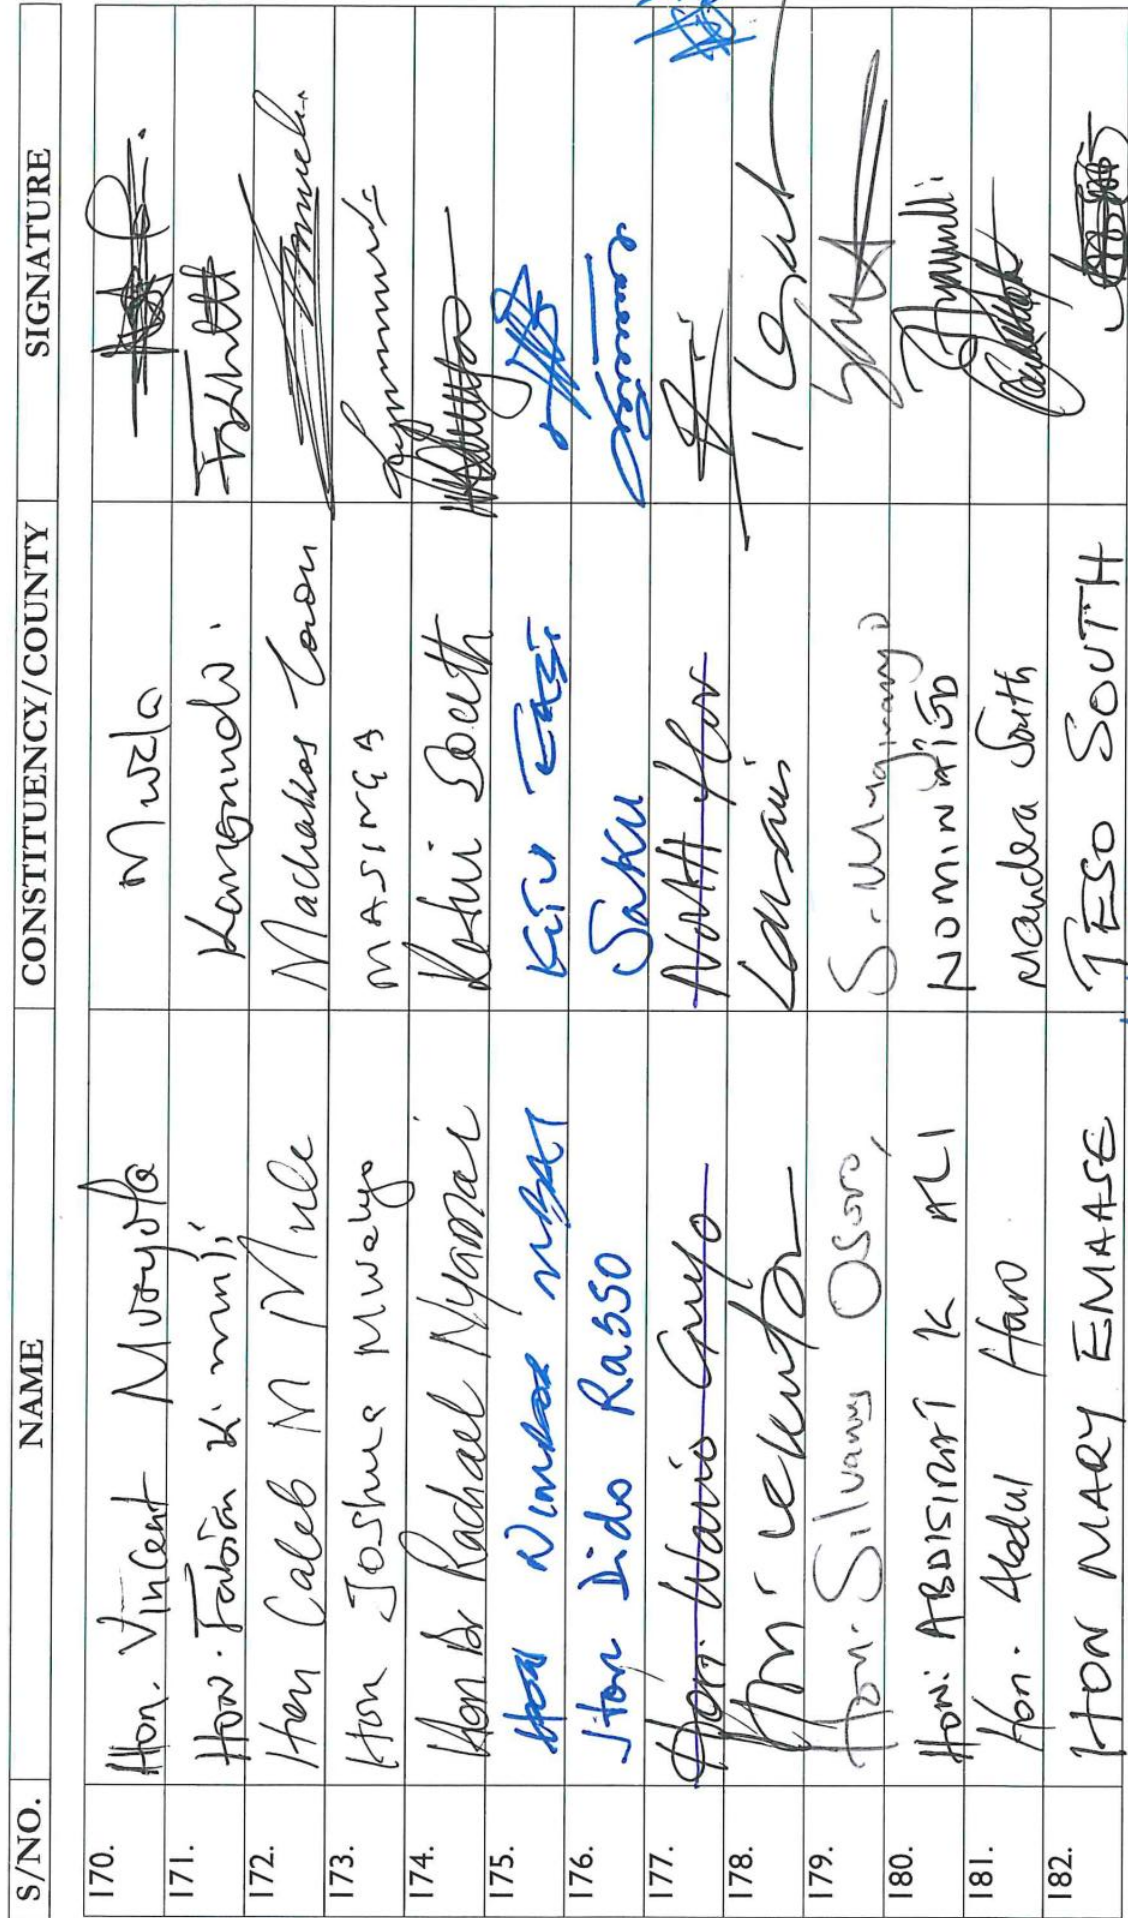 S/NO. NAME CONSTITUENCY/COUNTY SIGNATURE
170. Hon. Vincent Musyoka Mwala
171. Hon. Fabian K. muli Kangundo.
172. Hon Caleb M Mule Machakos Town
173. Hon Joshua Mwalyo MASINGA
174. Hon Dr Rachael Nyamai Kitui South
175. Hon Nimrod MBAI Kitui East
176. Hon Dido Rasso SAKU
177. Hon. Wario Guyo North Horr
178. Hon Lekuton Laisamis
179. Hon. Silvanus Osoro, S. Mugirango
180. Hon. ABDISIRAT K ALI NOMINATED
181. Hon. Abdul Haro Mandera South
182. HON MARY EMAASE TESO SOUTH